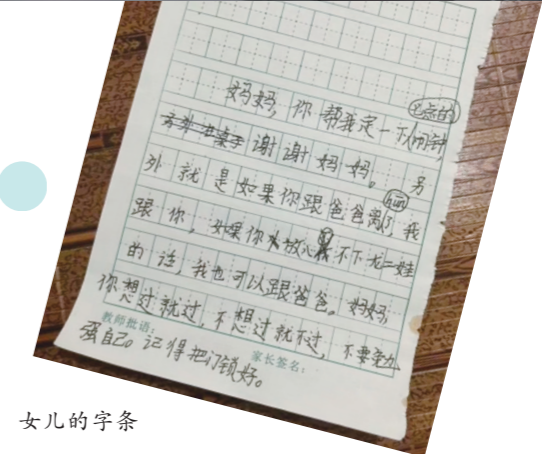 妈妈,你帮我定一下6点的闹钟,
谢谢妈妈。另
外就是如果你跟爸爸离hun了,我
跟你,如果你放心不下龙二娃
的话,我也可以跟爸爸。妈妈,
你想过就过,不想过就不过,不要勉
强自己。记得把门锁好。
教师批语:
家长签名:
女儿的字条